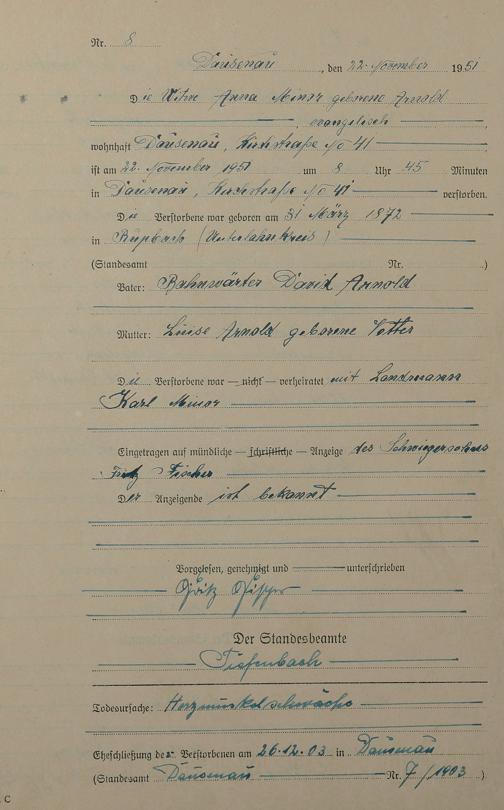 Nr. 8
Dausenau, den 22. November 1951
Die Witwe Anna Minor geborene Arnold
evangelisch
wohnhaft Dausenau, Kirchstraße No 41
ist am 22. November 1951 um 8 Uhr 45 Minuten
in Dausenau, Kirchstraße No 41 verstorben.
Die Verstorbene war geboren am 31 März 1872
in Rupbach (Unterlahnkreis)
(Standesamt Nr. )
Vater: Bahnwärter David Arnold
Mutter: Luise Arnold geborene
Die Verstorbene war — nicht — verheiratet mit Landmann
Karl Minor
Eingetragen auf mündliche — schriftliche — Anzeige des Schwiegersohnes
Fritz Fischer
Der Anzeigende ist bekannt
Vorgelesen, genehmigt und unterschrieben
Fritz Fischer
Der Standesbeamte
Tiefenbach
Todesursache: Herzmuskelschwäche
Eheschließung der Verstorbenen am 26.12.03 in Dausenau
(Standesamt Dausenau Nr. 7/1903)
C